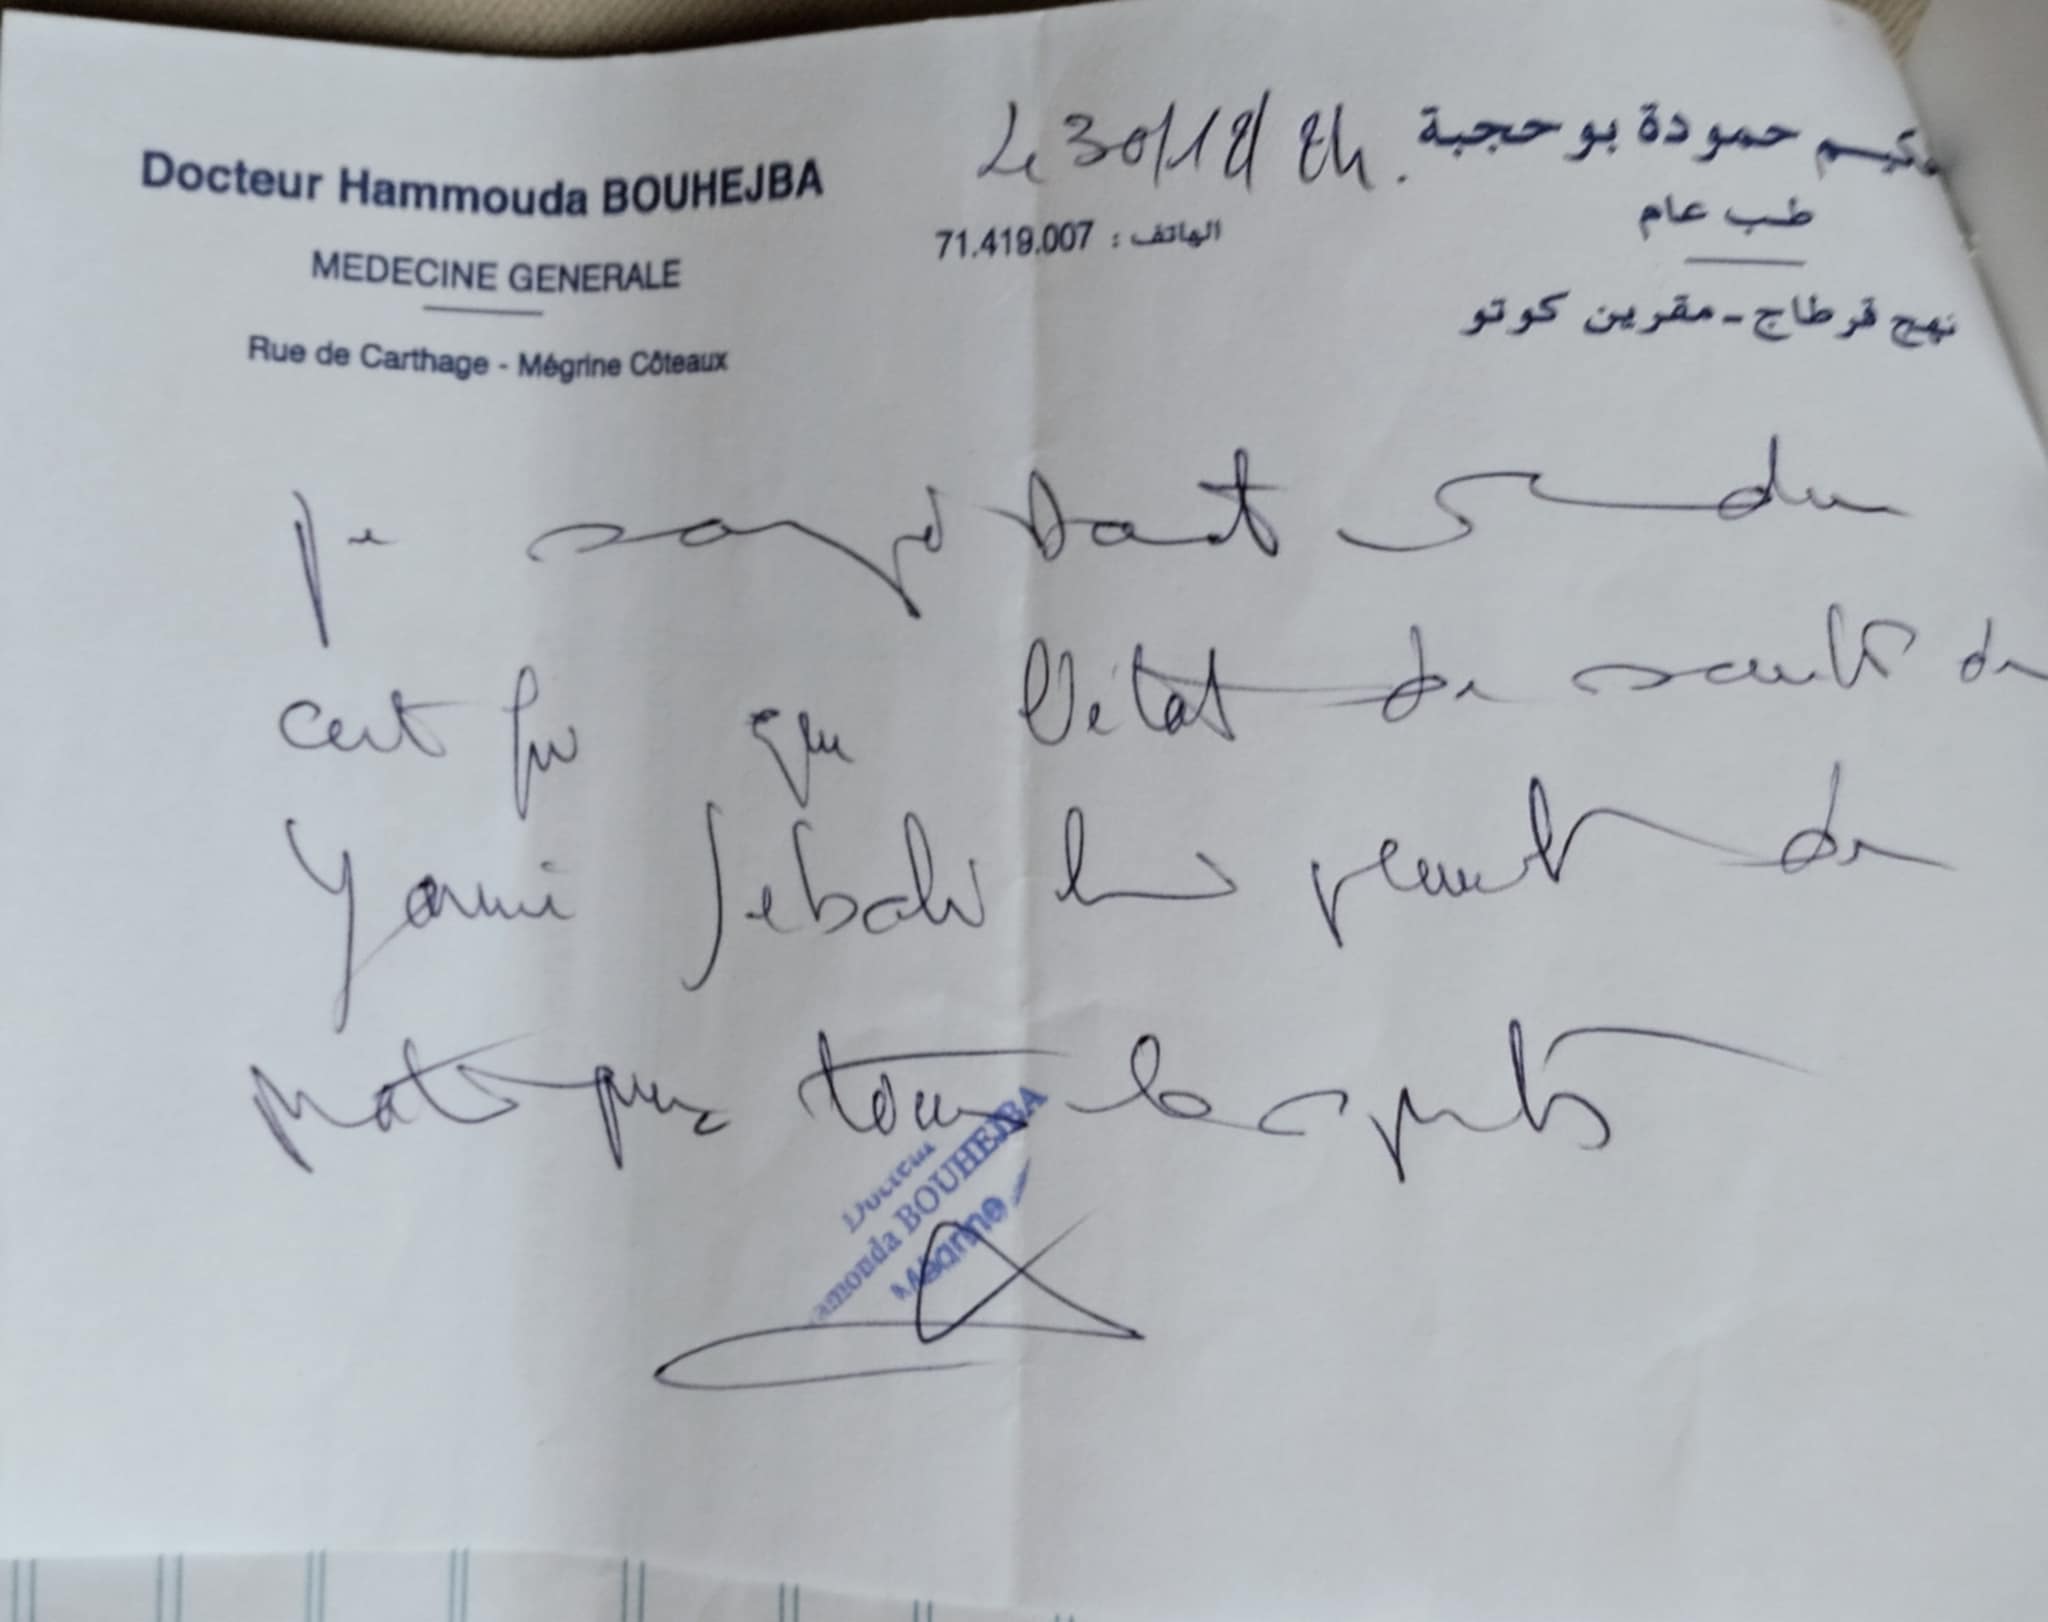 Docteur Hammouda BOUHEJBA
MEDECINE GENERALE
Rue de Carthage - Mégrine Côteaux
Le 30/12/24.
حكيم حمودة بوحجبة
طب عام
الهاتف : 71.419.007
نهج قرطاج - مقرين كوتو
Je soussigné Docteur
certifie que l'état de santé de
Yasmine Jebali lui permet de
pratiquer tous les sports
Docteur
amouda BOUHEJBA
Mégrine